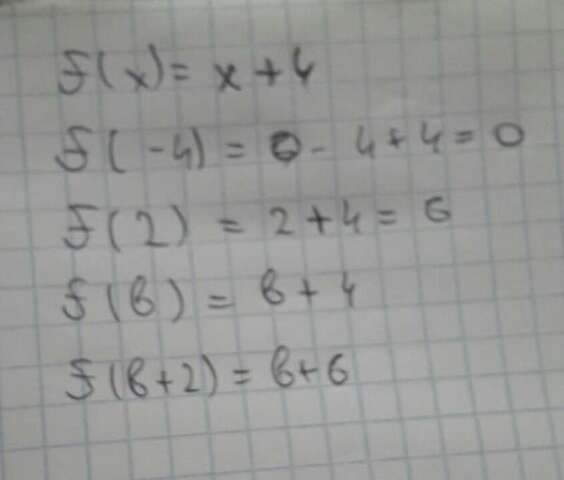 f(x) = x + 4
f(-4) = 0 - 4 + 4 = 0
f(2) = 2 + 4 = 6
f(b) = b + 4
f(b+2) = b + 6